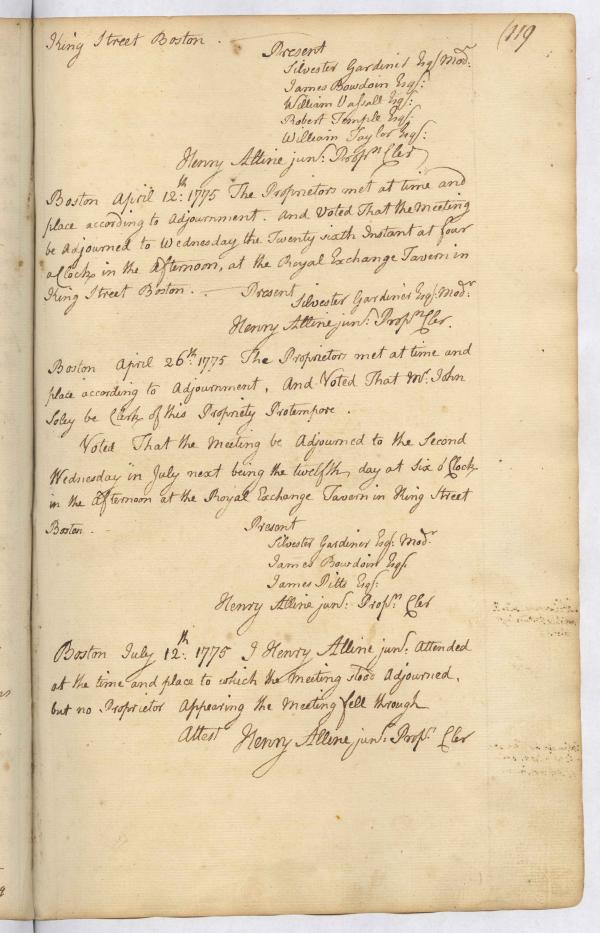 (119
King Street Boston.
Present
Silvester Gardiner Esqr. Modr.
James Bowdoin Esqr.
William Vassall Esqr.
Robert Temple Esqr.
William Taylor Esqr.
Henry Alline junr. Proprs. Cler
Boston April 12th. 1775 The Proprietors met at time and
place according to Adjournment. And Voted That the Meeting
be Adjourned to Wednesday the Twenty sixth Instant at four
o Clock in the Afternoon, at the Royal Exchange Tavern in
King Street Boston. Present
Silvester Gardiner Esqr. Modr.
Henry Alline junr. Proprs. Cler.
Boston April 26th. 1775 The Proprietors met at time and
place according to Adjournment, And Voted That Mr. John
Soley be Clerk of this Propriety Protempore.
Voted That the Meeting be Adjourned to the Second
Wednesday in July next being the twelfth day at Six o'Clock
in the Afternoon at the Royal Exchange Tavern in King Street
Boston.
Present
Silvester Gardiner Esqr. Modr.
James Bowdoin Esqr.
James Pitts Esqr.
Henry Alline junr. Proprs. Cler
Boston July 12th. 1775 I Henry Alline junr. Attended
at the time and place to which the Meeting stood Adjourned,
but no Proprietor Appearing the Meeting fell through
Attest Henry Alline junr. Proprs. Cler